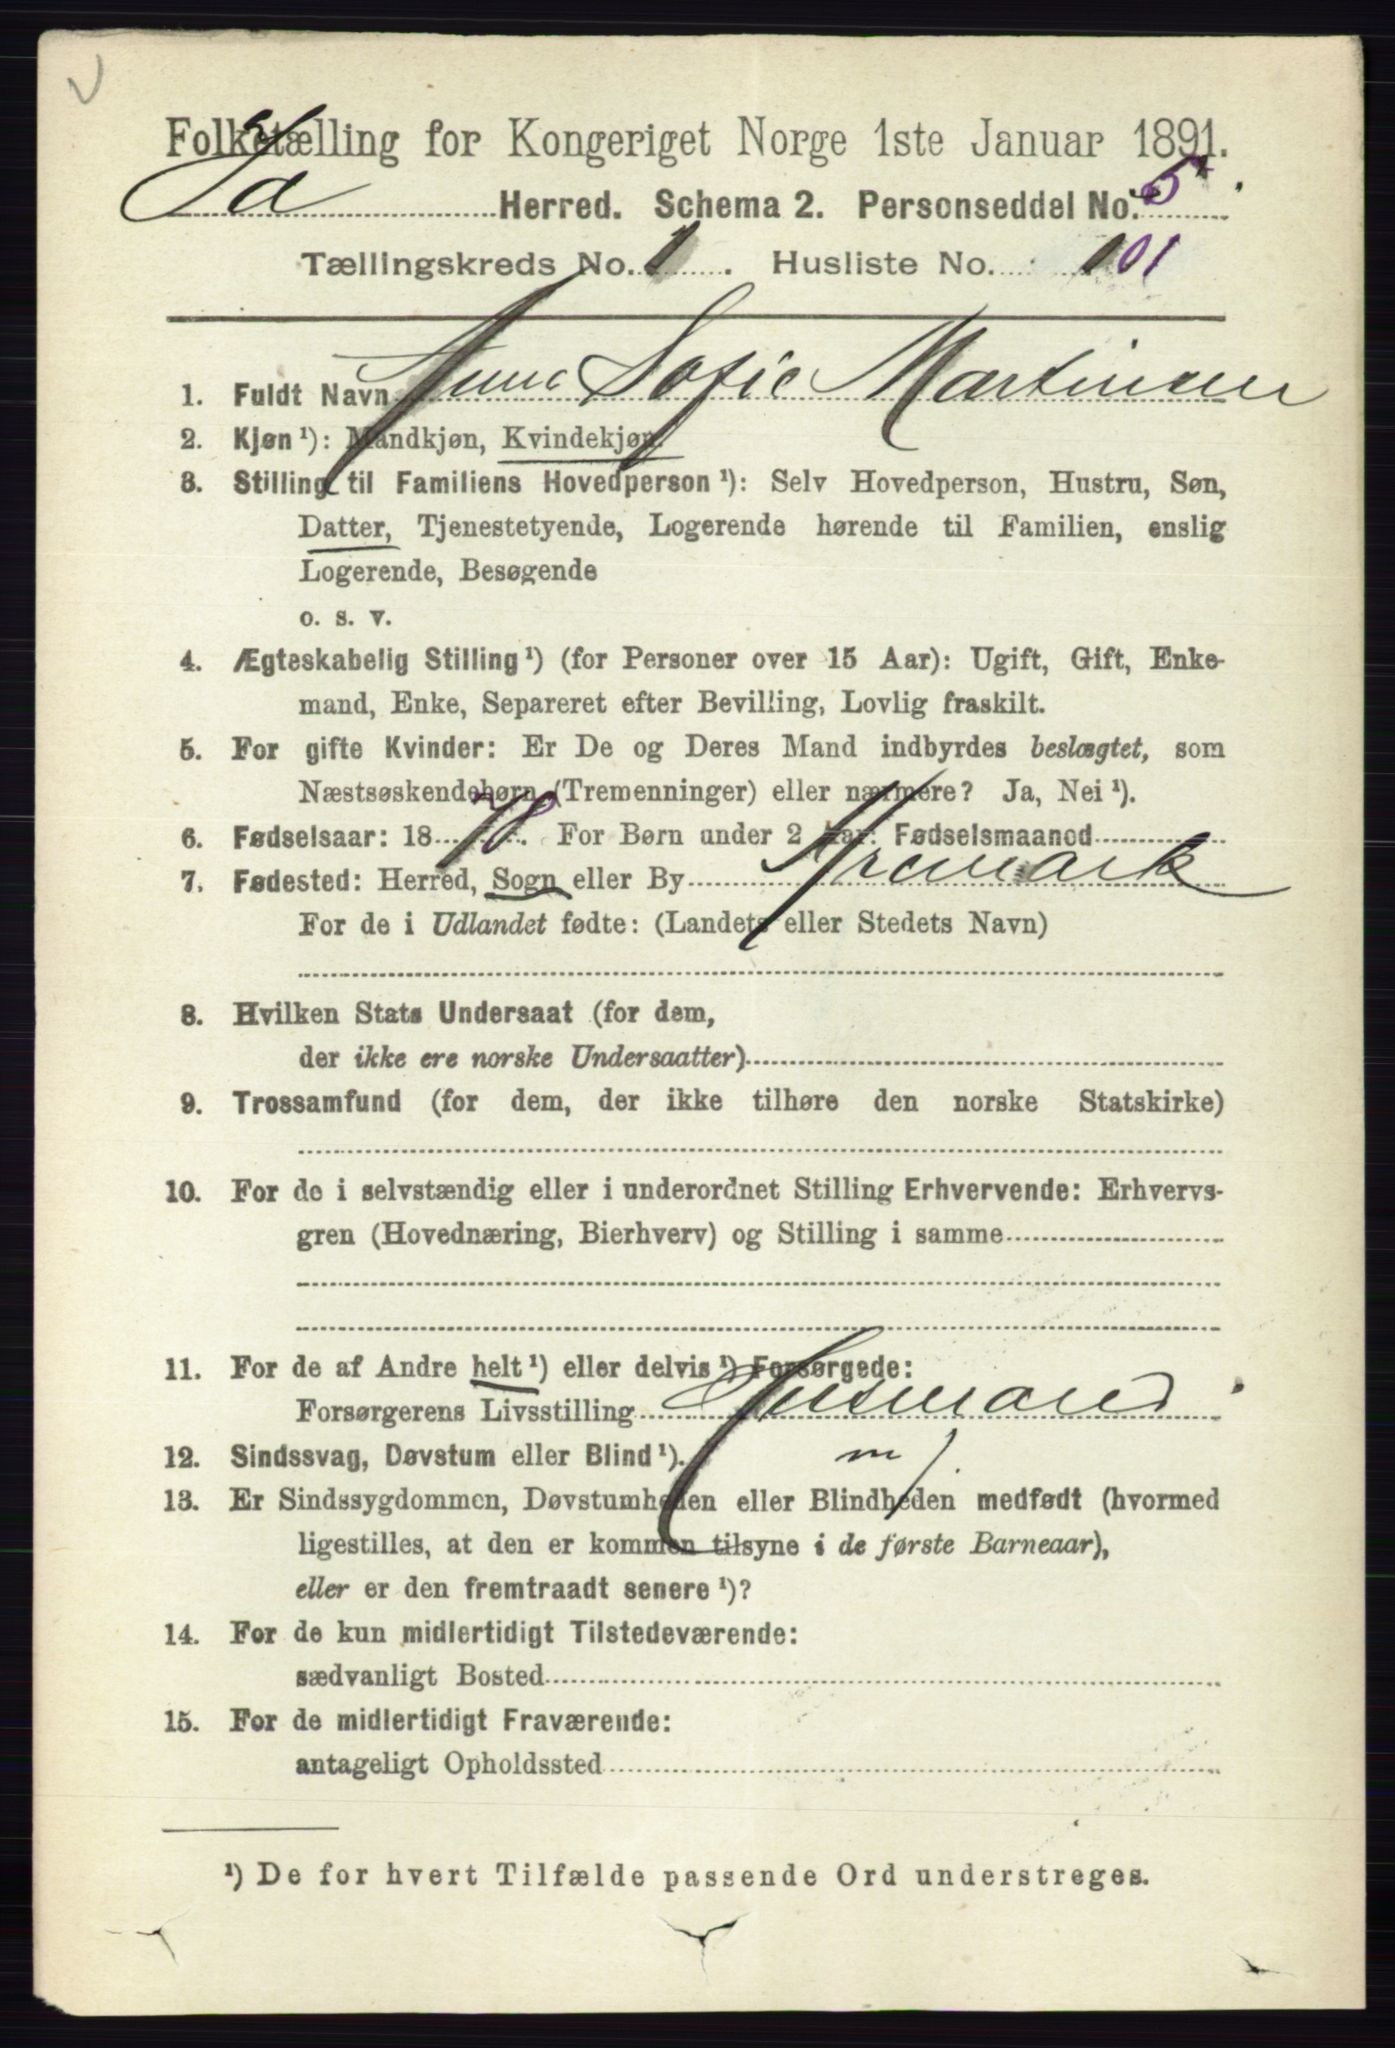 Folketælling for Kongeriget Norge 1ste Januar 1891.
Id Herred. Schema 2. Personseddel No. 5
Tællingskreds No. 1. Husliste No. 101
1. Fuldt Navn Anne Sofie Martinsen
2. Kjøn¹): Mandkjøn, Kvindekjøn.
3. Stilling til Familiens Hovedperson¹): Selv Hovedperson, Hustru, Søn,
Datter, Tjenestetyende, Logerende hørende til Familien, enslig
Logerende, Besøgende
o. s. v.
4. Ægteskabelig Stilling¹) (for Personer over 15 Aar): Ugift, Gift, Enke-
mand, Enke, Separeret efter Bevilling, Lovlig fraskilt.
5. For gifte Kvinder: Er De og Deres Mand indbyrdes beslægtet, som
Næstsøskendebørn (Tremenninger) eller nærmere? Ja, Nei¹).
6. Fødselsaar: 1878. For Børn under 2 Aar: Fødselsmaaned
7. Fødested: Herred, Sogn eller By Aremark
For de i Udlandet fødte: (Landets eller Stedets Navn)
8. Hvilken Stats Undersaat (for dem,
der ikke ere norske Undersaatter)
9. Trossamfund (for dem, der ikke tilhøre den norske Statskirke)
10. For de i selvstændig eller i underordnet Stilling Erhvervende: Erhvervs-
gren (Hovednæring, Bierhverv) og Stilling i samme
11. For de af Andre helt¹) eller delvis¹) Forsørgede:
Forsørgerens Livsstilling Husmand
m/
12. Sindssvag, Døvstum eller Blind¹).
13. Er Sindssygdommen, Døvstumheden eller Blindheden medfødt (hvormed
ligestilles, at den er kommen tilsyne i de første Barneaar),
eller er den fremtraadt senere¹)?
14. For de kun midlertidigt Tilstedeværende:
sædvanligt Bosted
15. For de midlertidigt Fraværende:
antageligt Opholdssted
¹) De for hvert Tilfælde passende Ord understreges.